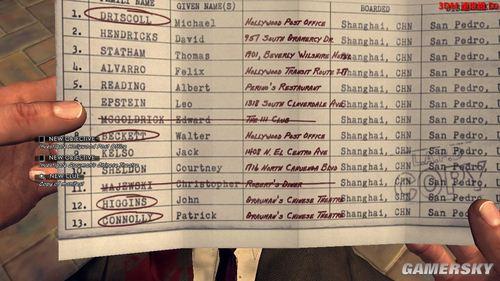 FAMILY NAME GIVEN NAME(S) BOARDED
1. DRISCOLL Michael HOLLYWOOD POST OFFICE Shanghai, CHN San Pedro,
2. HENDRICKS David 957 SOUTH GRAMERCY DR. Shanghai, CHN San Pedro,
3. STATHAM Thomas 1901, BEVERLY WILSHIRE Shanghai, CHN San Pedro, U
4. ALVARRO Felix HOLLYWOOD TRANSIT ROUTE Shanghai, CHN San Pedro, U
5. READING Albert PERINO'S RESTAURANT Shanghai, CHN San Pedro, U
EPSTEIN Leo 1318 SOUTH CLOVERDALE AVE Shanghai, CHN San Pedro, U
MCGOLDRICK Edward THE 111 CLUB Shanghai, CHN San Pedro, U
NEW OBJECTIVE
8. BECKETT Walter HOLLYWOOD POST OFFICE Shanghai, CHN San Pedro,
Investigate Hollywood Post Office
KELSO Jack 1408 N. EL CENTRO AVE Shanghai, CHN San Pedro,
NEW OBJECTIVE
Investigate Grauman's Chinese Theatre
SHELDON Courtney 1716 NORTH CAHUENGA BLVD Shanghai, CHN San Pedro,
NEW CLUE
Copy of manifest
11. MAJEWSKI Christopher ROBERT'S DINER Shanghai, CHN San Pedro,
12. HIGGINS John GRAUMAN'S CHINESE THEATRE Shanghai, CHN San Pedro,
13. CONNOLLY Patrick GRAUMAN'S CHINESE THEATRE Shanghai, CHN San Pedro, U
GAMERSKY